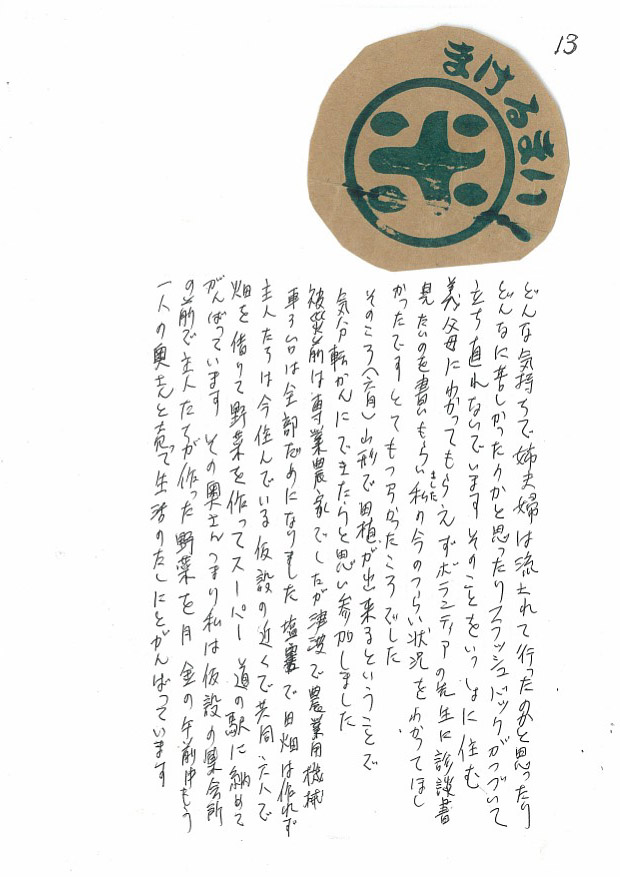 13
まけるまい!
どんな気持ちで姉夫婦は流されて行ったのかと思ったり
どんなに苦しかったのかと思ったりフラッシュバックがつづいて
立ち直れないでいます そのことをいっしょに住む
義父母にわかってもらえずボランティアの先生に診談書
見たいのを書いもらいました私の今のつらい状況をわかてほし
かったです とてもつらかったころでした
そのころ(六月)山形で田植が出来るということで
気分転かんにできたらと思い参加しました
被災前は専業農家でしたが津波で農業用機械
車3台は全部だめになりました 塩害で田畑は作れず
主人たちは今住んでいる仮設の近くで共同 六人で
畑を借りて野菜を作ってスーパー 道の駅に納めて
がんばっています その奥さんつまり私は仮設の集会所
の前で主人たちが作った野菜を月 金の午前中もう
一人の奥さんと売って生活のたしにとがんばっています